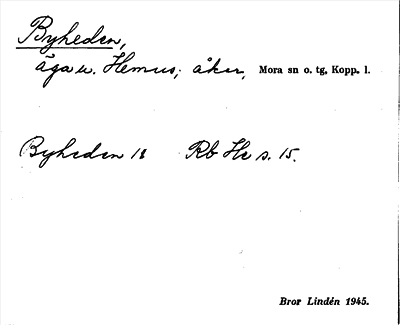 Byheden,
äga u. Hemus; åker, Mora sn o. tg, Kopp. l.
Byheden 18 Rb He s. 15.
Bror Lindén 1945.